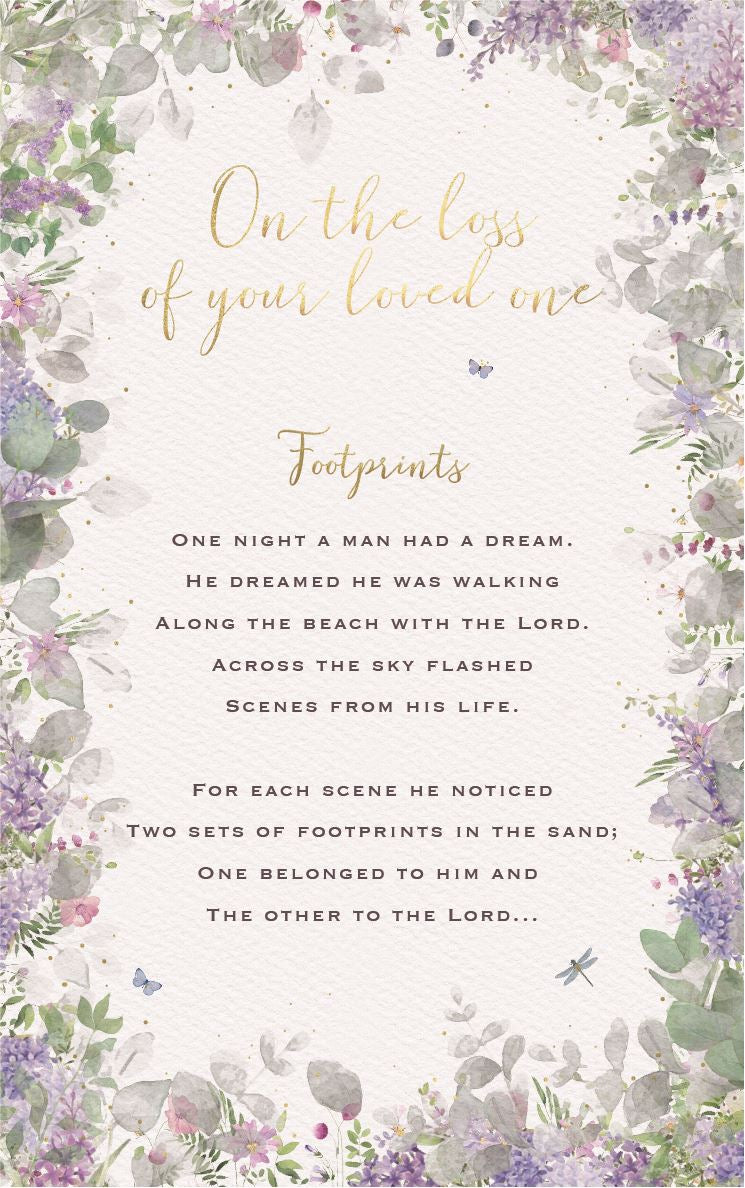 On the loss
of your loved one
Footprints
One night a man had a dream.
He dreamed he was walking
Along the beach with the Lord.
Across the sky flashed
Scenes from his life.
For each scene he noticed
Two sets of footprints in the sand;
One belonged to him and
The other to the Lord...